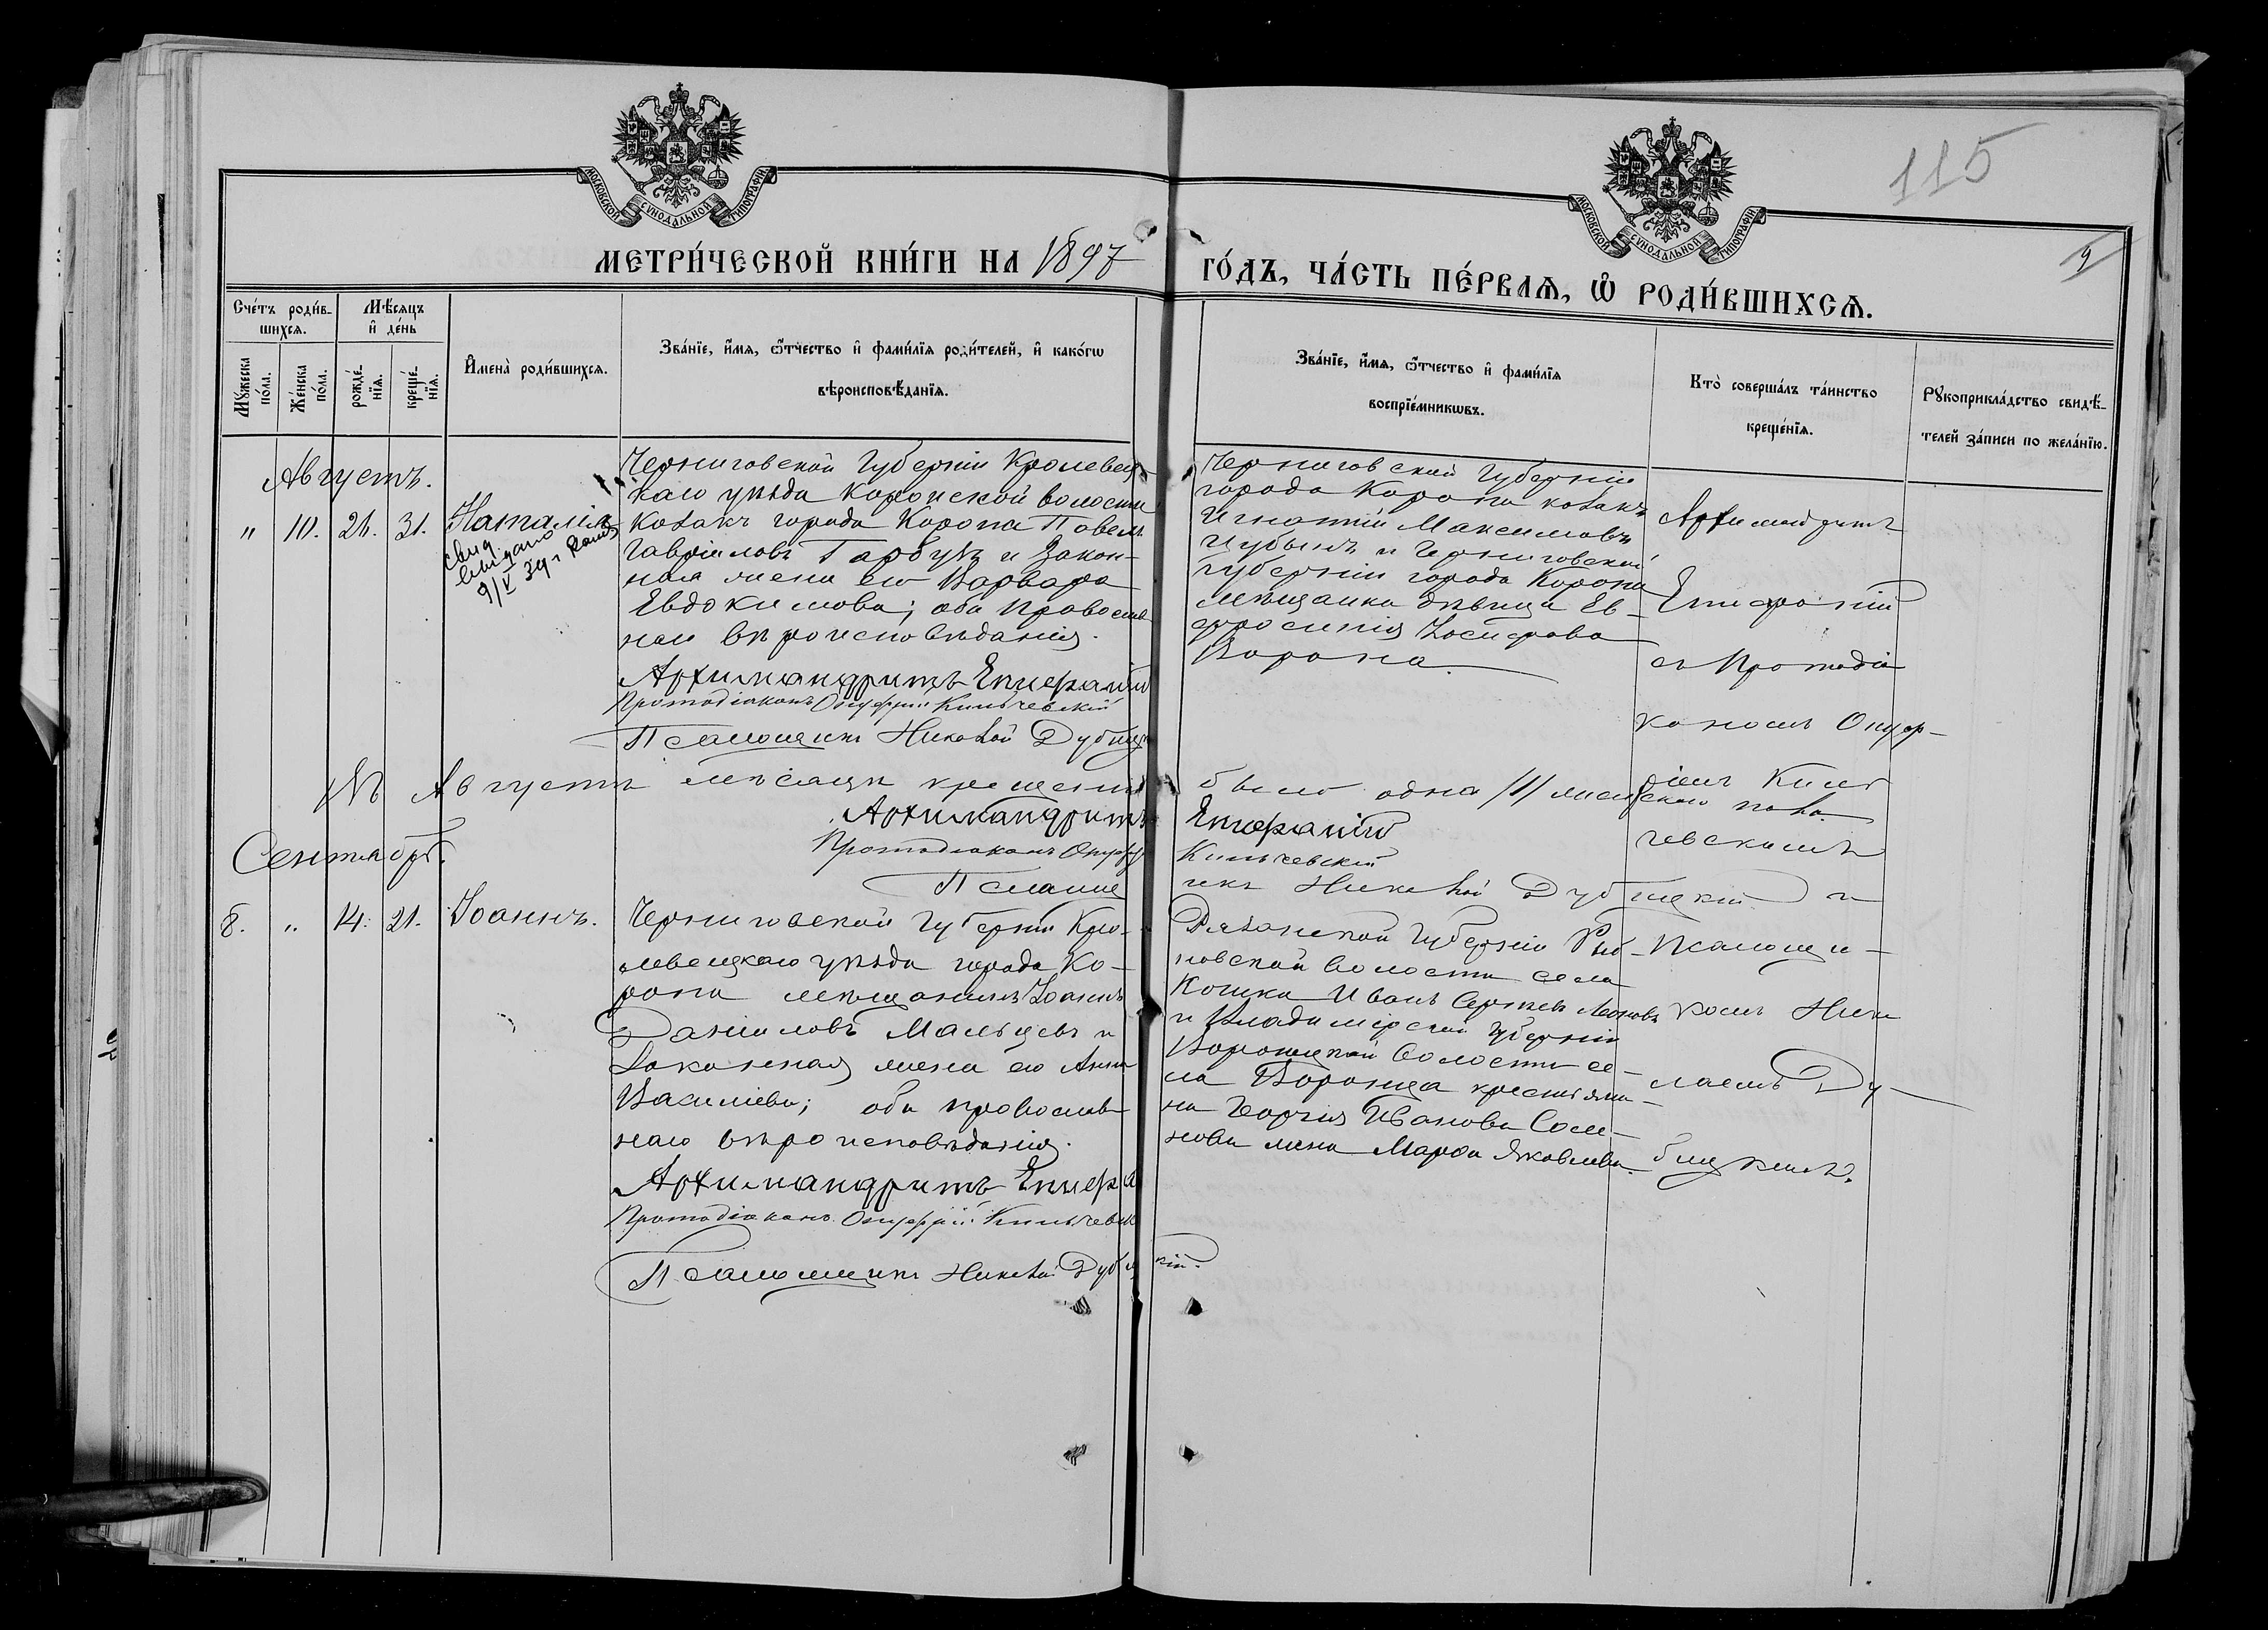 115
9
МОСКОВСКОЙ СѴНОДАЛЬНОЙ ТИПОГРАФІИ
МОСКОВСКОЙ СѴНОДАЛЬНОЙ ТИПОГРАФІИ
МЕТРИ́ЧЕСКОЙ КНИ́ГИ НА 1897
ГО́ДЪ, ЧА́СТЬ ПЕ́РВАѦ, Ѽ РОДИ́ВШИХСѦ.
Сче́тъ роди́в-
шихсѧ.
Мꙋжеска по́ла.
Же́нска по́ла.
Мѣ́сѧцъ
и҆ де́нь
рожде́-
нїѧ.
креще́-
нїѧ.
И҆мена̀ роди́вшихсѧ.
Зва́нїе, и҆́мѧ, ѻ҆́тчество и҆ фами́лїѧ роди́телей, и҆ како́гѡ
вѣроисповѣ́данїѧ.
Зва́нїе, и҆́мѧ, ѻ҆́тчество и҆ фами́лїѧ
воспрїе́мникѡвъ.
Кто̀ соверша́лъ та́инство
креще́нїѧ.
Рꙋкоприкла́дство свидѣ́-
телей за́писи по жела́нїю.
Августъ.
" 10. 21. 31. Наталія
свид.
выдано
9/V 39 г
Черниговской Губерніи Кролевец-
каго уѣзда Коропской волости
козакъ города Коропа Павелъ
Гавріиловъ Гарбузъ и закон-
ная жена его Варвара
Евдокимова; оба православ
наго вѣроисповѣданія.
Архимандритъ Епифаній
Протодіаконъ Онуфрій Кильчевскій
Псаломщикъ Николай Дубицкій
Черниговской Губерніи
города Коропа козакъ
Игнатій Максимовъ
Цубынъ и Черниговской
губерніи города Коропа
мѣщанка дѣвица Ев-
фросинія Іосифова
Ворона
Архимандритъ
Епифаній
съ Протодіа
кономъ Онуф-
ріемъ Киль
чевскимъ
Въ Августѣ мѣсяцѣ крещенія было одна /1/ женскаго пола
Архимандритъ Епифаній
Протодіаконъ Онуфрій Кильчевскій
Псаломщикъ Николай Дубицкій
Сентябрь.
8. " 14. 21. Іоаннъ.
Черниговской Губерніи Кро-
левецкаго уѣзда города Ко-
ропа мѣщанинъ Іоаннъ
Даніиловъ Мальцевъ и
законная жена его Анна
Василіева; оба православ
наго вѣроисповѣданія.
Архимандритъ Епифа
Протодіаконъ Онуфрій Кильчевск
Псаломщикъ Николай Дубицкій.
Рязанской Губерніи Рыб-
новской волости села
Иванъ Сергѣевъ
и Владимірской губерніи
волости се-
ла крестьяни-
на Георгія Иванова
жена Марѳа Яковлева.
и
Псаломщи-
комъ Нико
лаемъ Ду-
бицкимъ.